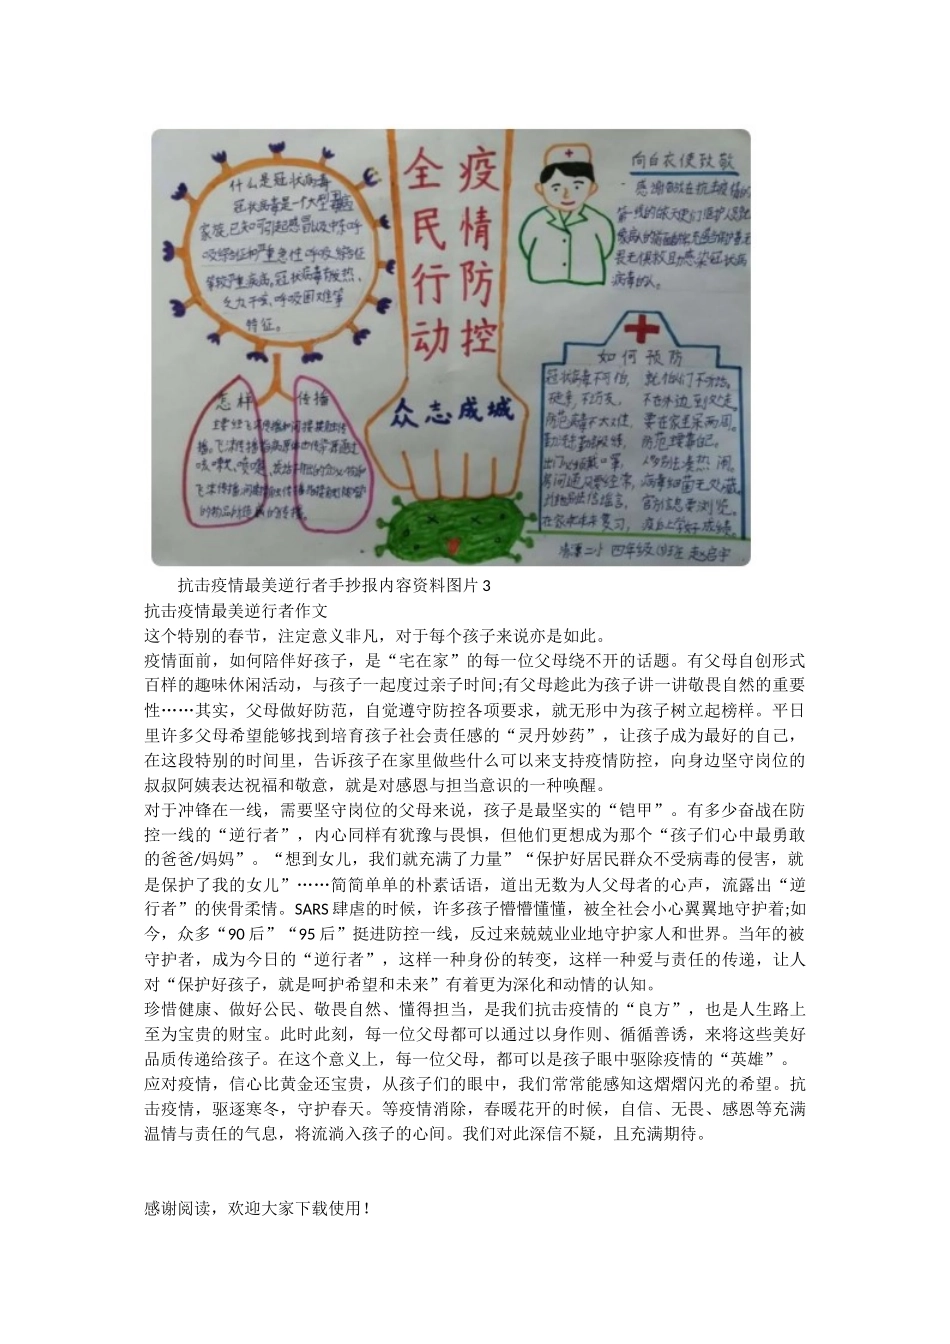 什么是冠状病毒
冠状病毒是一个大型病毒
家族,已知可引起感冒以及中东呼
吸综合征和严重急性呼吸综合征
等较严重疾病,冠状病毒有发热、
乏力干咳、呼吸困难等
特征。
怎样传播
全民行动
疫情防控
众志成城
向白衣使致敬
如何预防
冠状病毒不可怕,
出门必须戴口罩,
不在外边到处走。
要在家里呆两周。
人多别去凑热闹。
病毒细菌无处藏。
官方信息要浏览。
四年级
抗击疫情最美逆行者手抄报内容资料图片 3
抗击疫情最美逆行者作文
这个特别的春节，注定意义非凡，对于每个孩子来说亦是如此。
疫情面前，如何陪伴好孩子，是“宅在家”的每一位父母绕不开的话题。有父母自创形式
百样的趣味休闲活动，与孩子一起度过亲子时间;有父母趁此为孩子讲一讲敬畏自然的重要
性……其实，父母做好防范，自觉遵守防控各项要求，就无形中为孩子树立起榜样。平日
里许多父母希望能够找到培育孩子社会责任感的“灵丹妙药”，让孩子成为最好的自己，
在这段特别的时间里，告诉孩子在家里做些什么可以来支持疫情防控，向身边坚守岗位的
叔叔阿姨表达祝福和敬意，就是对感恩与担当意识的一种唤醒。
对于冲锋在一线，需要坚守岗位的父母来说，孩子是最坚实的“铠甲”。有多少奋战在防
控一线的“逆行者”，内心同样有犹豫与畏惧，但他们更想成为那个“孩子们心中最勇敢
的爸爸/妈妈”。“想到女儿，我们就充满了力量”“保护好居民群众不受病毒的侵害，就
是保护了我的女儿”……简简单单的朴素话语，道出无数为人父母者的心声，流露出“逆
行者”的侠骨柔情。SARS 肆虐的时候，许多孩子懵懵懂懂，被全社会小心翼翼地守护着;如
今，众多“90 后”“95 后”挺进防控一线，反过来兢兢业业地守护家人和世界。当年的被
守护者，成为今日的“逆行者”，这样一种身份的转变，这样一种爱与责任的传递，让人
对“保护好孩子，就是呵护希望和未来”有着更为深化和动情的认知。
珍惜健康、做好公民、敬畏自然、懂得担当，是我们抗击疫情的“良方”，也是人生路上
至为宝贵的财宝。此时此刻，每一位父母都可以通过以身作则、循循善诱，来将这些美好
品质传递给孩子。在这个意义上，每一位父母，都可以是孩子眼中驱除疫情的“英雄”。
应对疫情，信心比黄金还宝贵，从孩子们的眼中，我们常常能感知这熠熠闪光的希望。抗
击疫情，驱逐寒冬，守护春天。等疫情消除，春暖花开的时候，自信、无畏、感恩等充满
温情与责任的气息，将流淌入孩子的心间。我们对此深信不疑，且充满期待。
感谢阅读，欢迎大家下载使用！